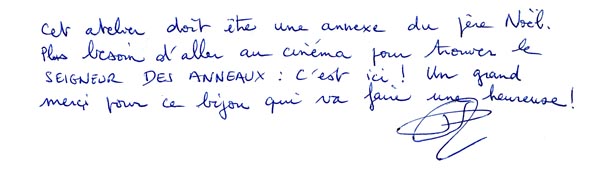 Cet atelier doit être une annexe du père Noël.
Plus besoin d'aller au cinéma pour trouver le
SEIGNEUR DES ANNEAUX : C'est ici ! Un grand
merçi pour ce bijou qui va faire une heureuse !